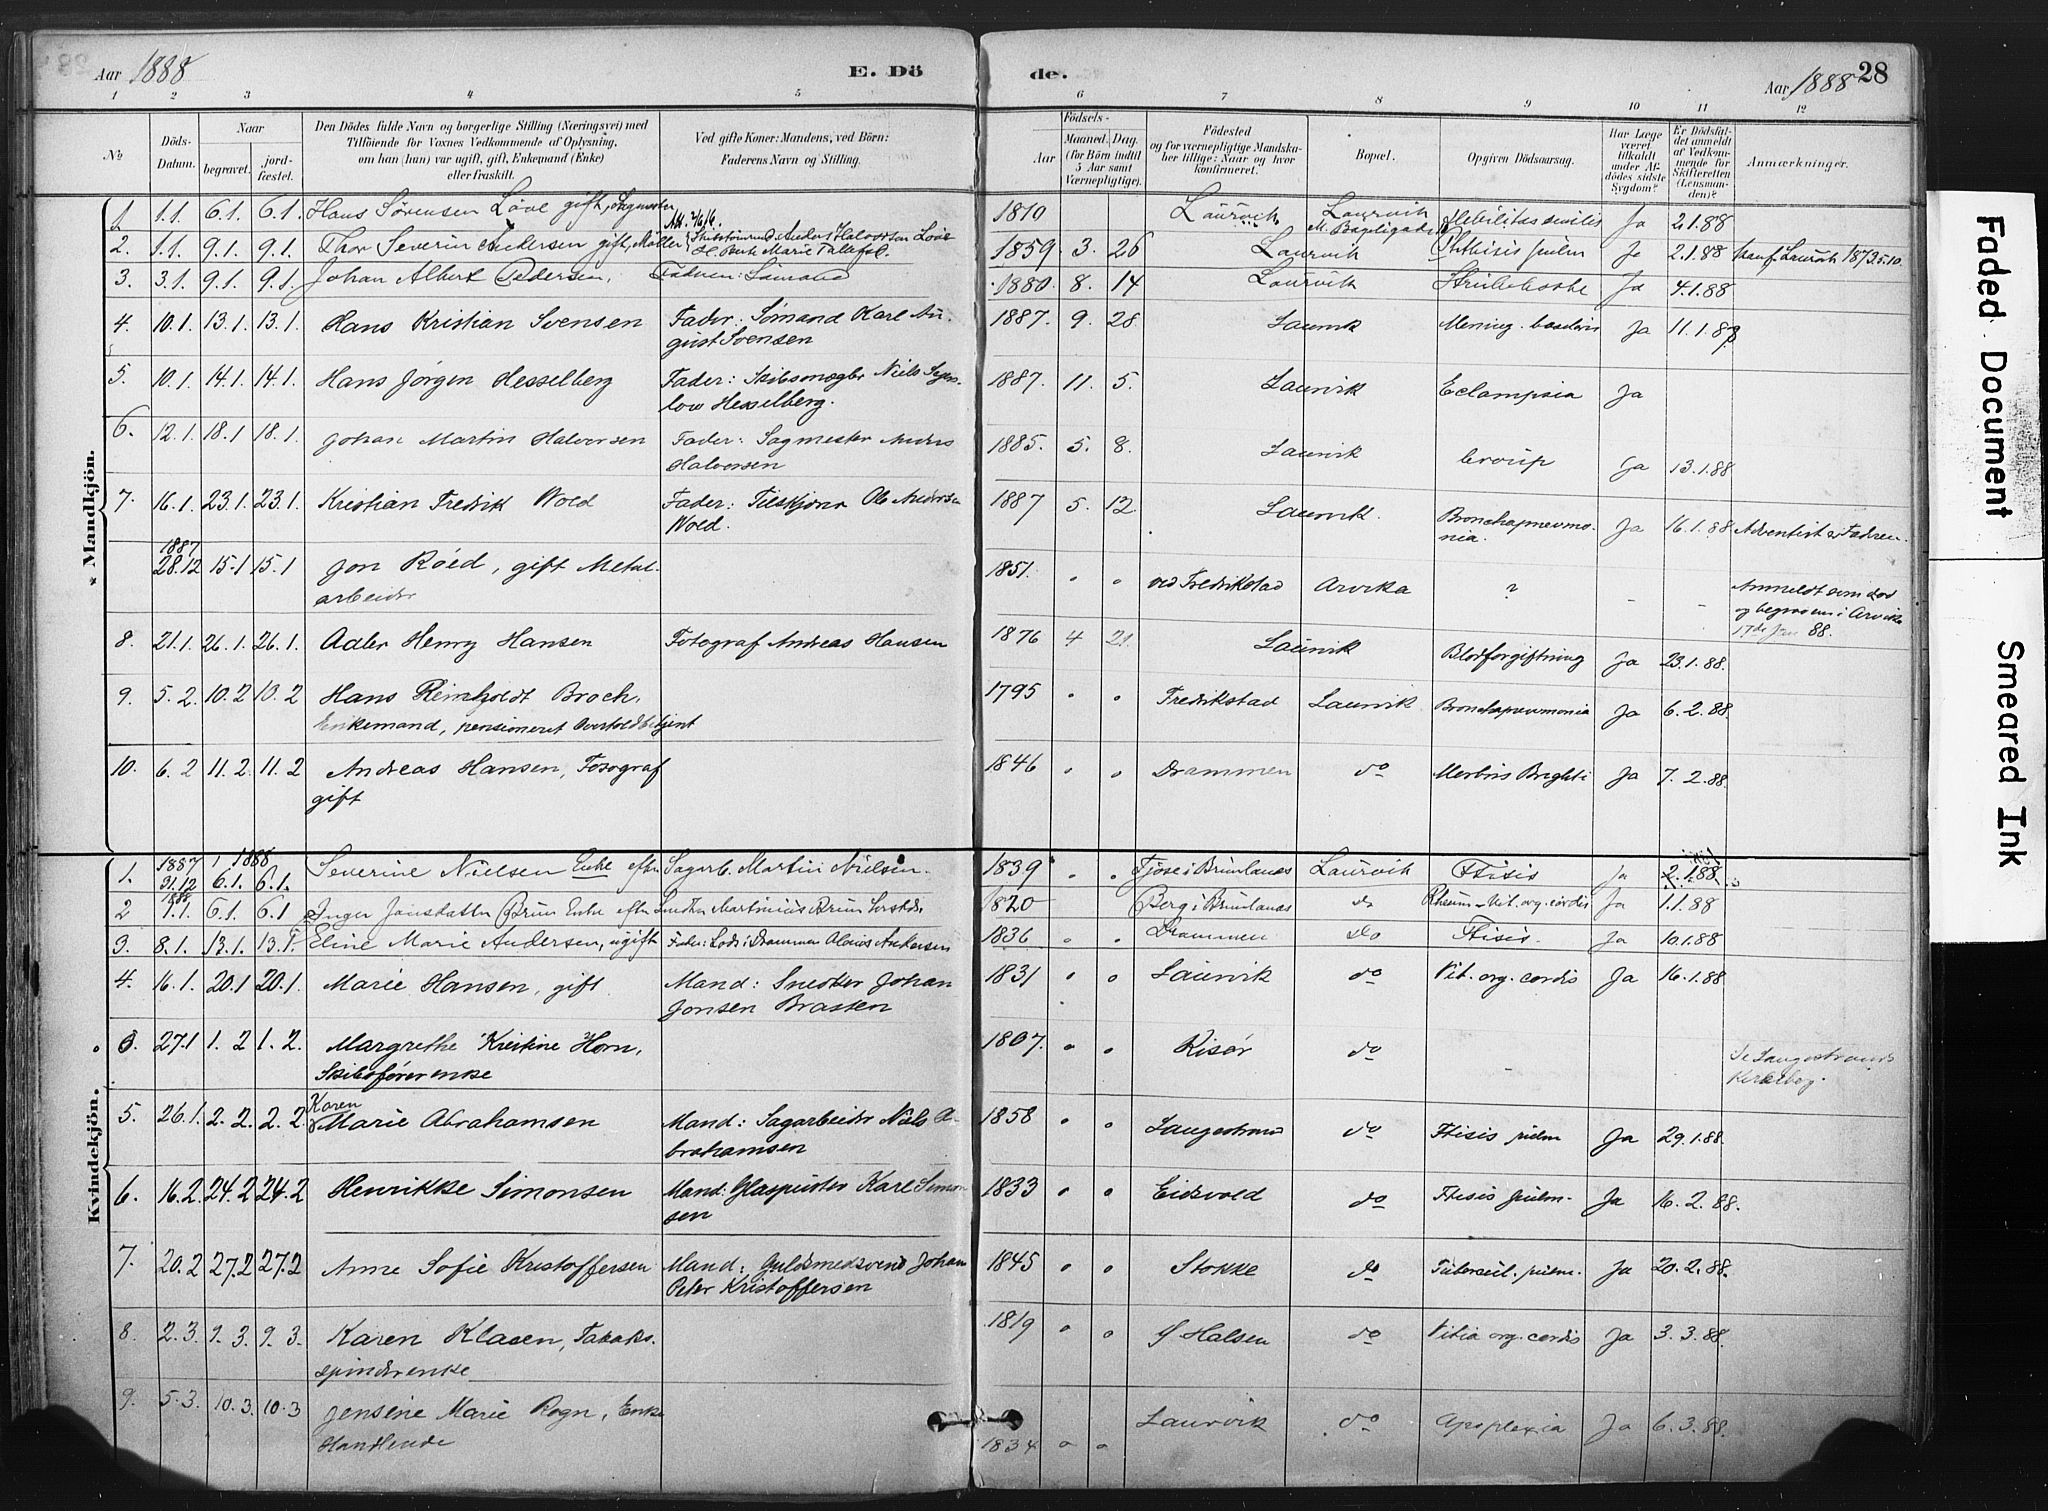 Aar 1888 E. Dö de. Aar 1888 28
1 2 3 4 5 6 7 8 9 10 11 12
No
Döds-Datum.
Naar
begravet.
jord-fæstet.
Den Dödes fulde Navn og borgerlige Stilling (Næringsvei) med
Tilföiende for Voxnes Vedkommende af Oplysning,
om han (hun) var ugift, gift, Enkemand (Enke)
eller fraskilt.
Ved gifte Koner: Mandens, ved Börn:
Faderens Navn og Stilling.
Födsels-
Aar
Maaned. Dag.
(for Börn indtil
5 Aar samt
Værnepligtige).
Födested
og for værnepligtige Mandska-
ber tillige: Naar og hvor
konfirmeret.
Bopæl.
Opgiven Dödsaarsag.
Har Læge
været
tilkaldt
under Af-
dödes sidste
Sygdom?
Er Dödsfal-
det anmeldt
af Vedkom-
mende for
Skifteretten
(Lensman-
den)?
Anmærkninger.
* Mandkjön.
1. 1.1. 6.1. 6.1. Hans Sørensen Løve gift, Sagmester 1810 Laurvik Laurvik Debilitas senilis Ja 2.1.88
2. 1.1. 9.1. 9.1. Thor Severin Andersen gift, Møller 1859 3. 26 Laurvik Phthisis pulm Ja 2.1.88 konf Laurvik 1873 5.10.
3. 3.1. 9.1. 9.1. Johan Albert Pedersen, Faderen: Sømand 1880 8. 14 Laurvik Strubehoste Ja 4.1.88
4. 10.1. 13.1. 13.1. Hans Kristian Svensen Fader: Sømand Karl Au- 1887. 9. 28 Laurvik Mening. basilaris Ja 11.1.88
gust Svensen
5. 10.1. 14.1. 14.1. Hans Jørgen Hesselberg Fader: Skibsmægler Niels 1887. 11. 5. Laurvik Eclampsia Ja
low Hesselberg.
6. 12.1. 18.1 18.1. Johan Martin Halvorsen Fader: Sagmester Anders 1885. 5. 8. Laurvik Croup Ja 13.1.88
Halvorsen
7. 16.1. 23.1. 23.1. Kristian Fredrik Wold Fader: Tilskjærer Ole Andersen 1887 5. 12. Laurvik. Bronchopneumo- Ja 16.1.88 Adventist er Faderen.
Wold. nia.
1887
28.12 15.1 15.1 Jon Röed, gift Metal- 1851. " " ved Fredrikstad Arvika ? - - Anmeldt som død
arbeider og begraven i Arvika
17de Jan 88.
8. 21.1. 26.1. 26.1. Adler Henry Hansen Fotograf Andreas Hansen 1876 4 21. Laurvik Blodforgiftning Ja 23.1.88.
9. 5.2. 10.2 10.2 Hans Reinholdt Broch, 1795 " " Fredrikstad Laurvik Bronchopneumonia Ja 6.2.88.
Enkemand, pensioneret Overtoldbetjent
10. 6.2 11.2. 11.2 Andreas Hansen, Fotograf 1846 " " Drammen do Morbus Brighti Ja 7.2.88.
gift
Kvindekjön.
1. 1887 31.12 1888 6.1. 6.1. Severine Nielsen Enke efter Sagarb. Martin Nielsen. 1839 " " Tjøse i Brunlanes Laurvik Ftisis Ja 2.1.88
2 1888 1.1. 6.1. 6.1 Inger Brun Enke efter Martinius Brun 1820 Berg i Brunlanes do Rheum - Vit. org. cordis Ja 1.1.88
3. 8.1. 13.1. 13.1. Eline Marie Andersen, ugift Fader: Lods i Drammen Andersen 1836 " " Drammen do Ftisis. Ja 10.1.88
4. 16.1. 20.1 20.1. Marie Hansen, gift Mand: Snedker Johan 1831 " " Laurvik do Vit. org. cordis Ja 16.1.88
Jonsen Brasten
0. 27.1 1.2 1.2. Margrethe Kristine Horn, 1807. " " Risør do - Se Langestrands
Skibsførerenke Kirkebog.
5. 26.1. 2.2. 2.2. Karen Marie Abrahamsen Mand: Sagarbeider Niels A- 1858 " " Langestrand do Ftisis pulm Ja 29.1.88.
brahamsen
6. 16.2. 24.2 24.2 Henrikke Simonsen Mand: Glaspuster Karl Simon 1833 " " Eidsvold do Ftisis pulm. Ja 16.2.88.
sen
7. 20.2 27.2 27.2 Anne Sofie Kristoffersen Mand: Guldsmedsvend Johan 1845 " " Stokke do Tubercul. pulm. Ja 20.2.88.
Peter Kristoffersen
8. 2.3. 9.3. 9.3. Karen Klasen, Tobaks- 1819 " " Halsen do Vitia org. cordis Ja 3.3.88.
spinderenke
9. 5.3. 10.3. 10.3 Jensine Marie Rogn, Enke Laurvik do Apoplexia Ja 6.3.88.
Handlende 1834 " "
Faded Document
Smeared Ink